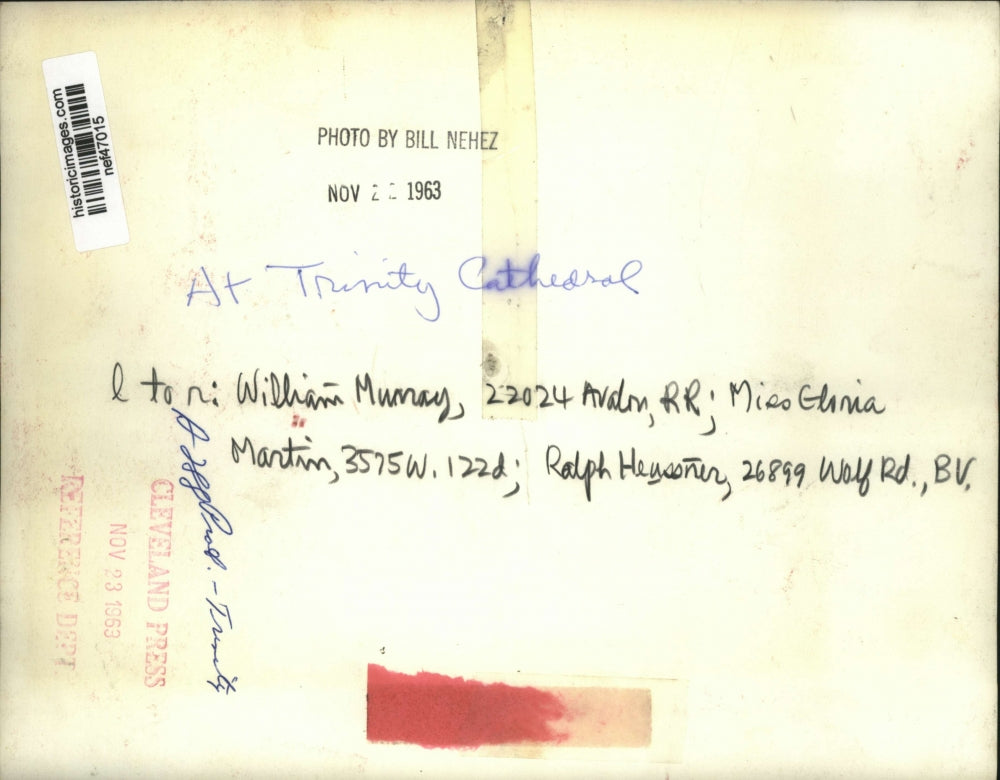 historicimages.com
nef47015
PHOTO BY BILL NEHEZ
NOV 2 2 1963
At Trinity Cathedral
l to r: William Murray, 22024 Avalon, RR; Miss
Martin, 3575 W. 122d; Ralph Heussner, 26899 Wolf Rd., BV.
Trinity
CLEVELAND PRESS
NOV 23 1963
REFERENCE DEPT